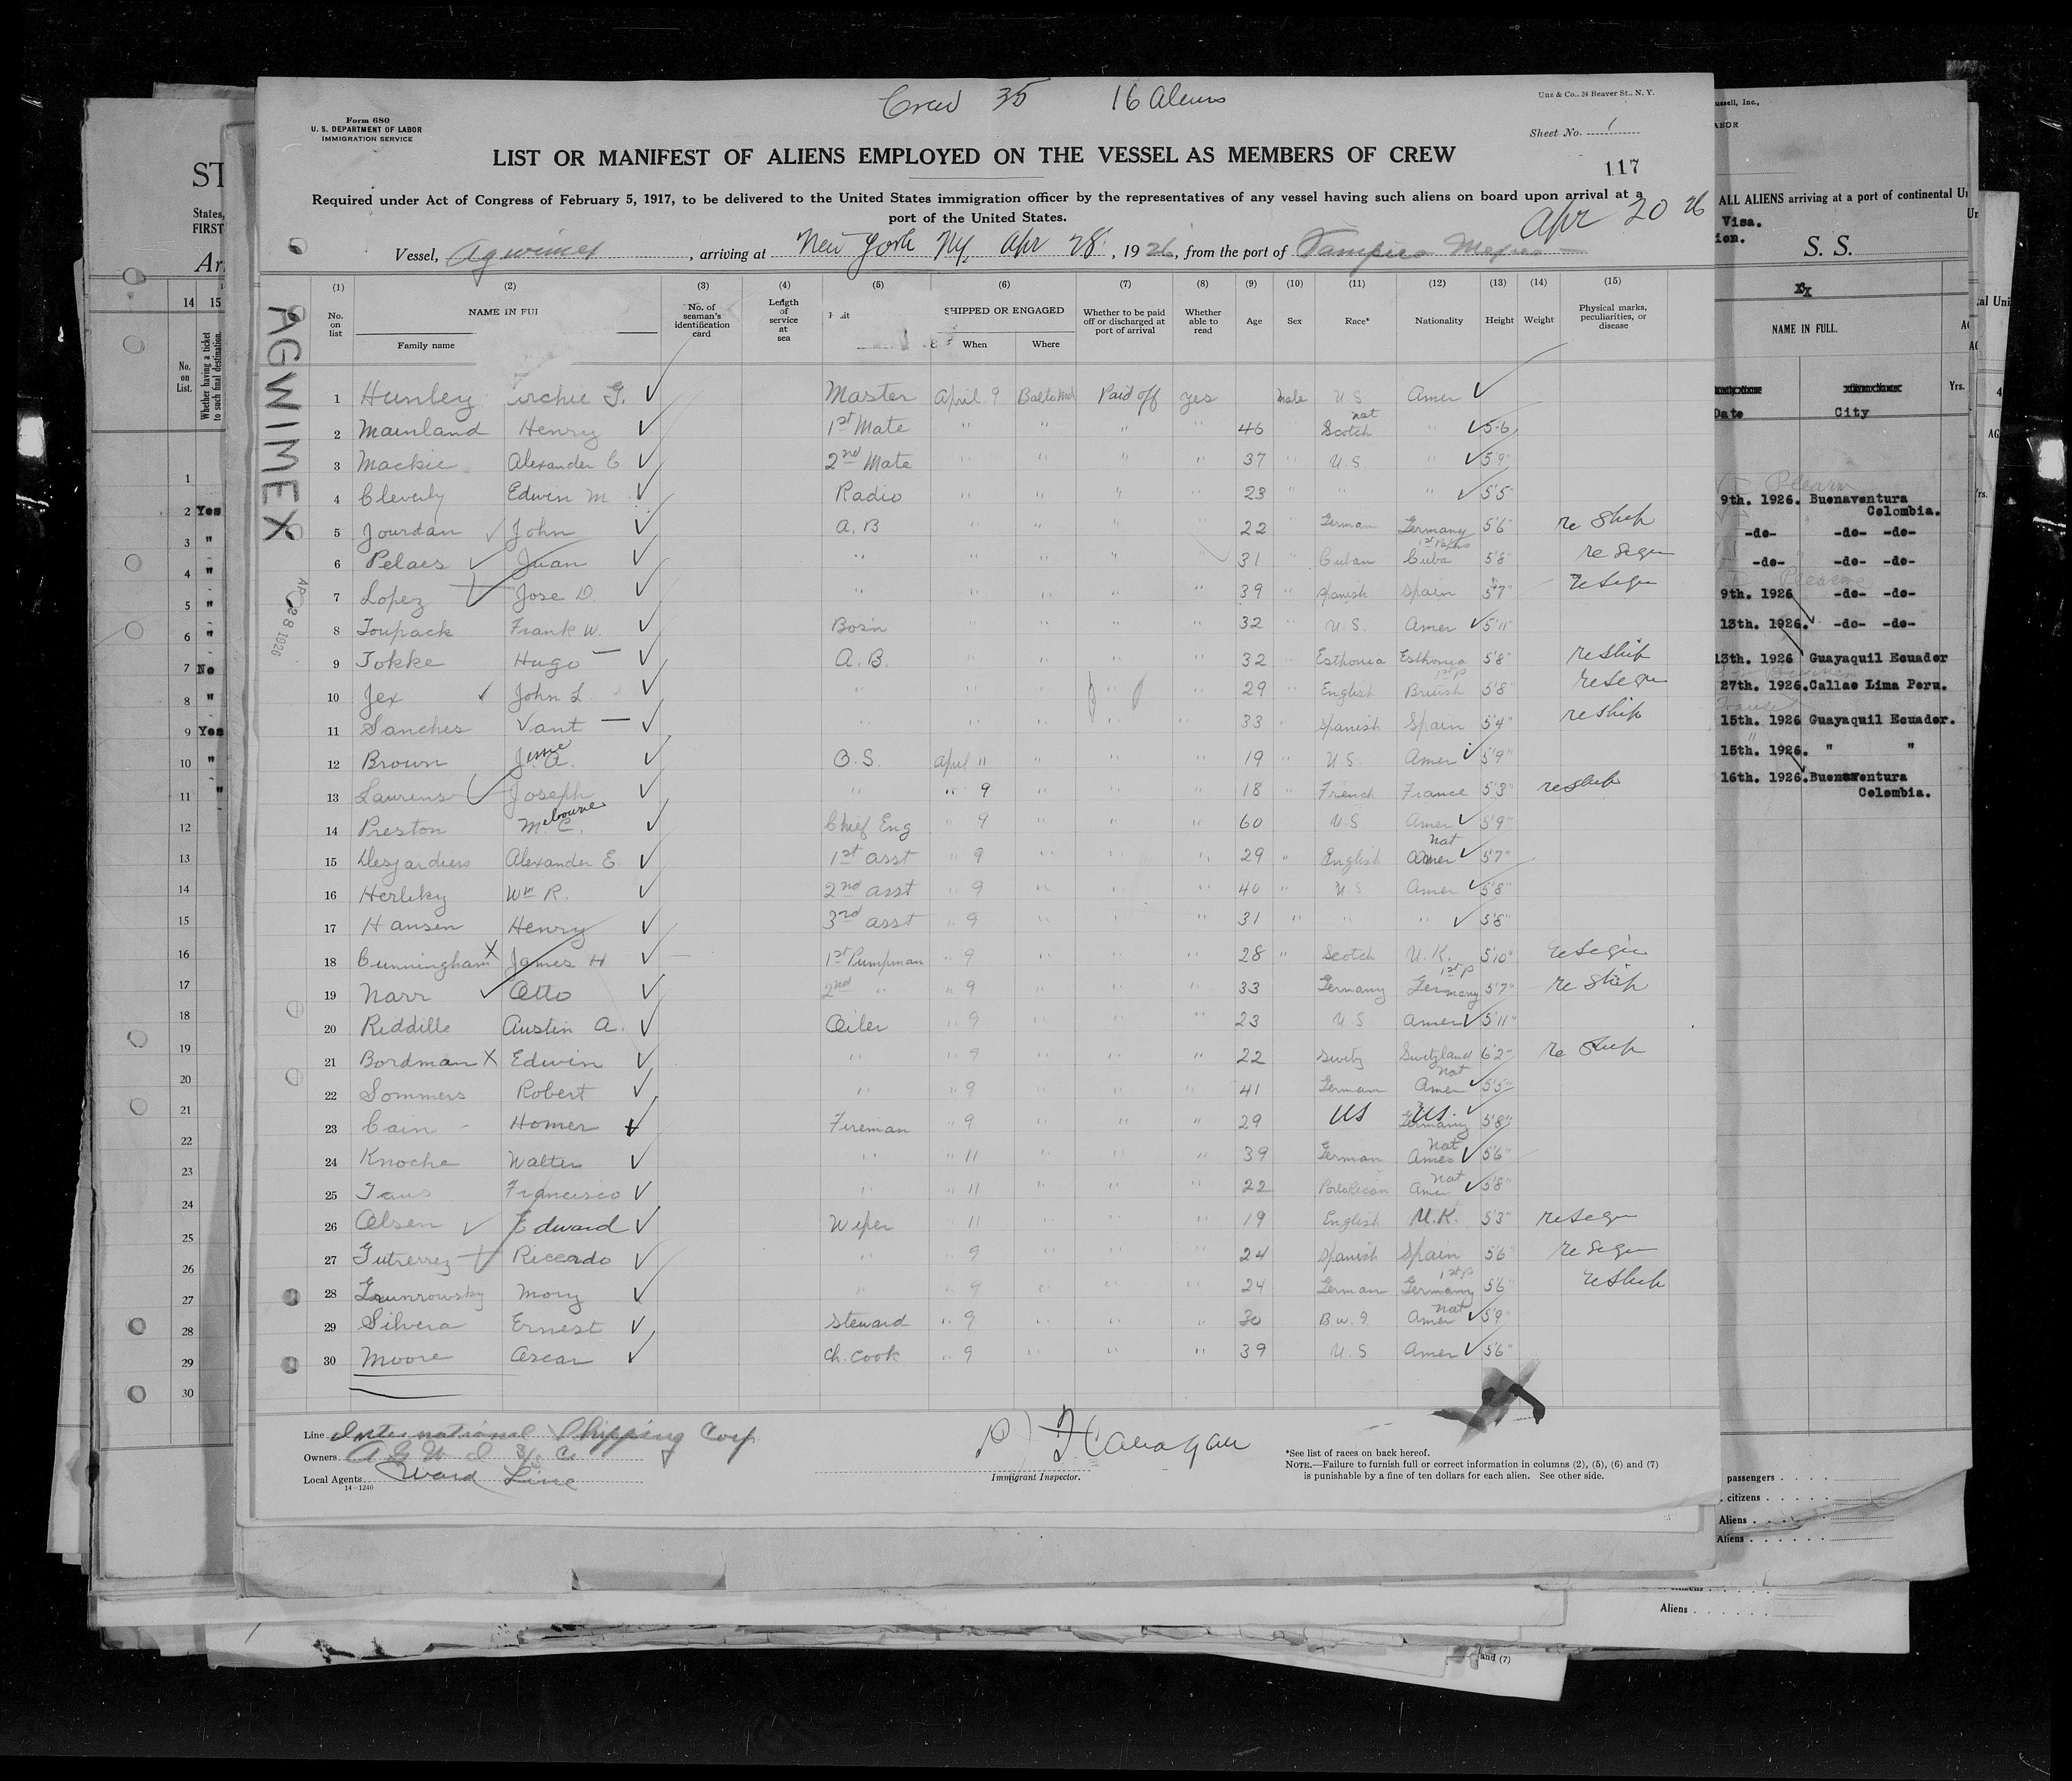 Crew 35 16 Aliens
Unz & Co., 24 Beaver St., N. Y.
Form 680
U. S. DEPARTMENT OF LABOR
IMMIGRATION SERVICE
Sheet No. 1
LIST OR MANIFEST OF ALIENS EMPLOYED ON THE VESSEL AS MEMBERS OF CREW
117
Required under Act of Congress of February 5, 1917, to be delivered to the United States immigration officer by the representatives of any vessel having such aliens on board upon arrival at a
port of the United States.
Apr 20 26
Vessel, Agwimex, arriving at New York NY, Apr 28, 1926, from the port of Tampico Mexico
AGWIMEX
APR 28 1926
(1) (2) (3) (4) (5) (6) (7) (8) (9) (10) (11) (12) (13) (14) (15)
No. on list NAME IN FUL Family name No. of seaman's identification card Length of service at sea SHIPPED OR ENGAGED When Where Whether to be paid off or discharged at port of arrival Whether able to read Age Sex Race* Nationality Height Weight Physical marks, peculiarities, or disease
1 Hunley rchie G. Master April 9 Balto Md Paid off yes male U S Amer
2 Mainland Henry 1st Mate " " " " 46 " Scotch nat " 5-6
3 Mackie Alexander C 2nd Mate " " " " 37 " U.S. " 5'9"
4 Cleverly Edwin M Radio " " " " 23 " " " 5'5"
5 Jourdan John A.B " " " " 22 " German Germany 1st Paprs 5'6" re Ship
6 Pelaes Juan " " " " 31 " Cuban Cuba 5'8" re sign
7 Lopez Jose D. " " " " " 39 " Spanish Spain 5'7" resign
8 Toupack Frank W. Bos'n " " " " 32 " U.S. Amer 5'11"
9 Tokke Hugo A.B. " " " " 32 " Esthonia Esthonia 5'8" reship
10 Jex John L " " " " " 29 " English British 1st P 5'8" resign
11 Sanches Vant " " " " " 33 " Spanish Spain 5'4" reship
12 Brown Jesse A. O.S. April 11 " " " 19 " U.S. Amer 5'9"
13 Laurens Joseph " " 9 " " " 18 " French France 5'3" reship
14 Preston Melbourne C. Chief Eng " 9 " " " 60 U.S Amer 5'9"
15 Desjardiens Alexander E. 1st asst " 9 " " " 29 " English Amer Nat 5'7"
16 Herlihy Wm R. 2nd asst " 9 " " " 40 " U.S Amer 5'8"
17 Hansen Henry 3rd asst " 9 " " " 31 " " " 5'8"
18 Cunningham James H 1st Pumpman " 9 " " " 28 " Scotch U.K. 5'10" resign
19 Narr Otto 2nd " " 9 " " " 33 Germany Germany 1st P 5'7" re Ship
20 Riddille Austin A. Oiler " 9 " " " 23 U S Amer 5'11"
21 Bordman Edwin " " 9 " " " 22 Switz Switzland 6'2" re Ship
22 Sommers Robert " " 9 " " " 41 German Amer Nat 5'5"
23 Cain Homer Fireman " 9 " " " 29 US US. Germany 5'8"
24 Knoche Walter " " 11 " " " 39 German Amer Nat 5'6"
25 Francisco " " 11 " " " 22 Porto Rican Amer nat 5'8"
26 Olsen Edward Wiper " 11 " " " 19 English U.K. 5'3" resign
27 Gutierrez Riccardo " 9 " " " 24 Spanish Spain 5'6" re sign
28 Mory " " 9 " " " 24 German Germany 1st P 5'6" reship
29 Silvera Ernest Steward " 9 " " " 30 B.W.I. Amer nat 5'9"
30 Moore Oscar Ch. Cook " 9 " " " 39 U.S Amer 5'6"
Line International Shipping Corp
Owners A G W I S/S Co
Local Agents Ward Line
14-1240
Immigrant Inspector.
*See list of races on back hereof.
NOTE.—Failure to furnish full or correct information in columns (2), (5), (6) and (7)
is punishable by a fine of ten dollars for each alien. See other side.
ST
States,
FIRST
14 15
No. on List.
Whether having a ticket to such final destination.
1
2 Yes
3 "
4 "
5 "
6 "
7 No
8 "
9 Yes
10 "
11 "
12
13
14
15
16
17
18
19
20
21
22
23
24
25
26
27
28
29
30
ussell, Inc.,
ABOR
ALL ALIENS arriving at a port of continental Un
Visa.
S. S.
NAME IN FULL.
Yrs.
Date City
9th. 1926. Buenaventura
Colombia.
-do- -do- -do-
-do- -do- -do-
9th. 1926 -do- -do-
13th. 1926. -do- -do-
13th. 1926 Guayaquil Ecuador
27th. 1926. Callao Lima Peru.
15th. 1926 Guayaquil Ecuador.
15th. 1926. " "
16th. 1926. Buenaventura
Colombia.
passengers
citizens
Aliens
Aliens
Aliens
and (7)